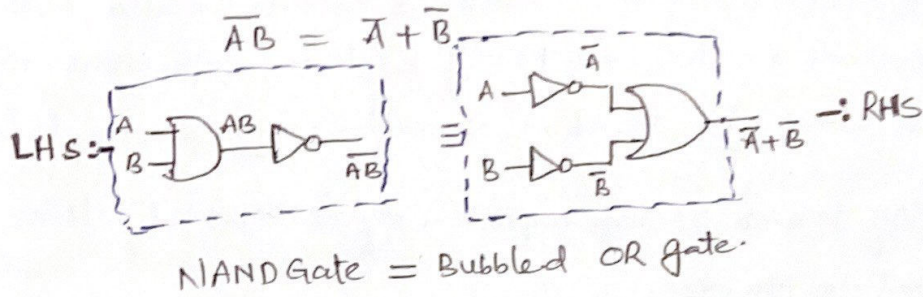 A̅B̅ = A̅ + B̅
LHS:- A B AB A̅B̅ ≡ A A̅ B B̅ A̅+B̅ -: RHS
NAND Gate = Bubbled OR gate.